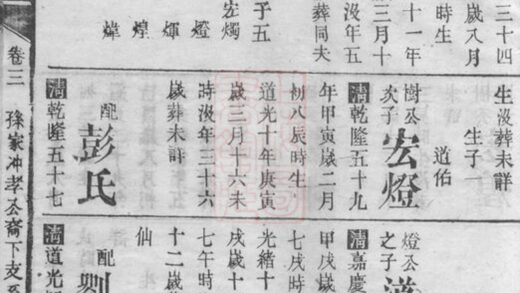 三十四
歲八月
時生
十一年
三月十
没年五
葬同夫
于五
宏燭
燈
輝
煌
煒
生没葬未詳
生子一
道佑
樹公次子
宏燈
清乾隆五十九
年甲寅歲二月
初八辰時生
道光十年庚寅
歲三月十六未
時没年三十六
歲葬未詳
配彭氏
清乾隆五十七
燈公之子
清嘉慶
甲戌歲
七戌時
光緒十
戌歲十
七午時
十二歲
仙
配劉
清道光
卷三 孫家冲孝公裔下支系